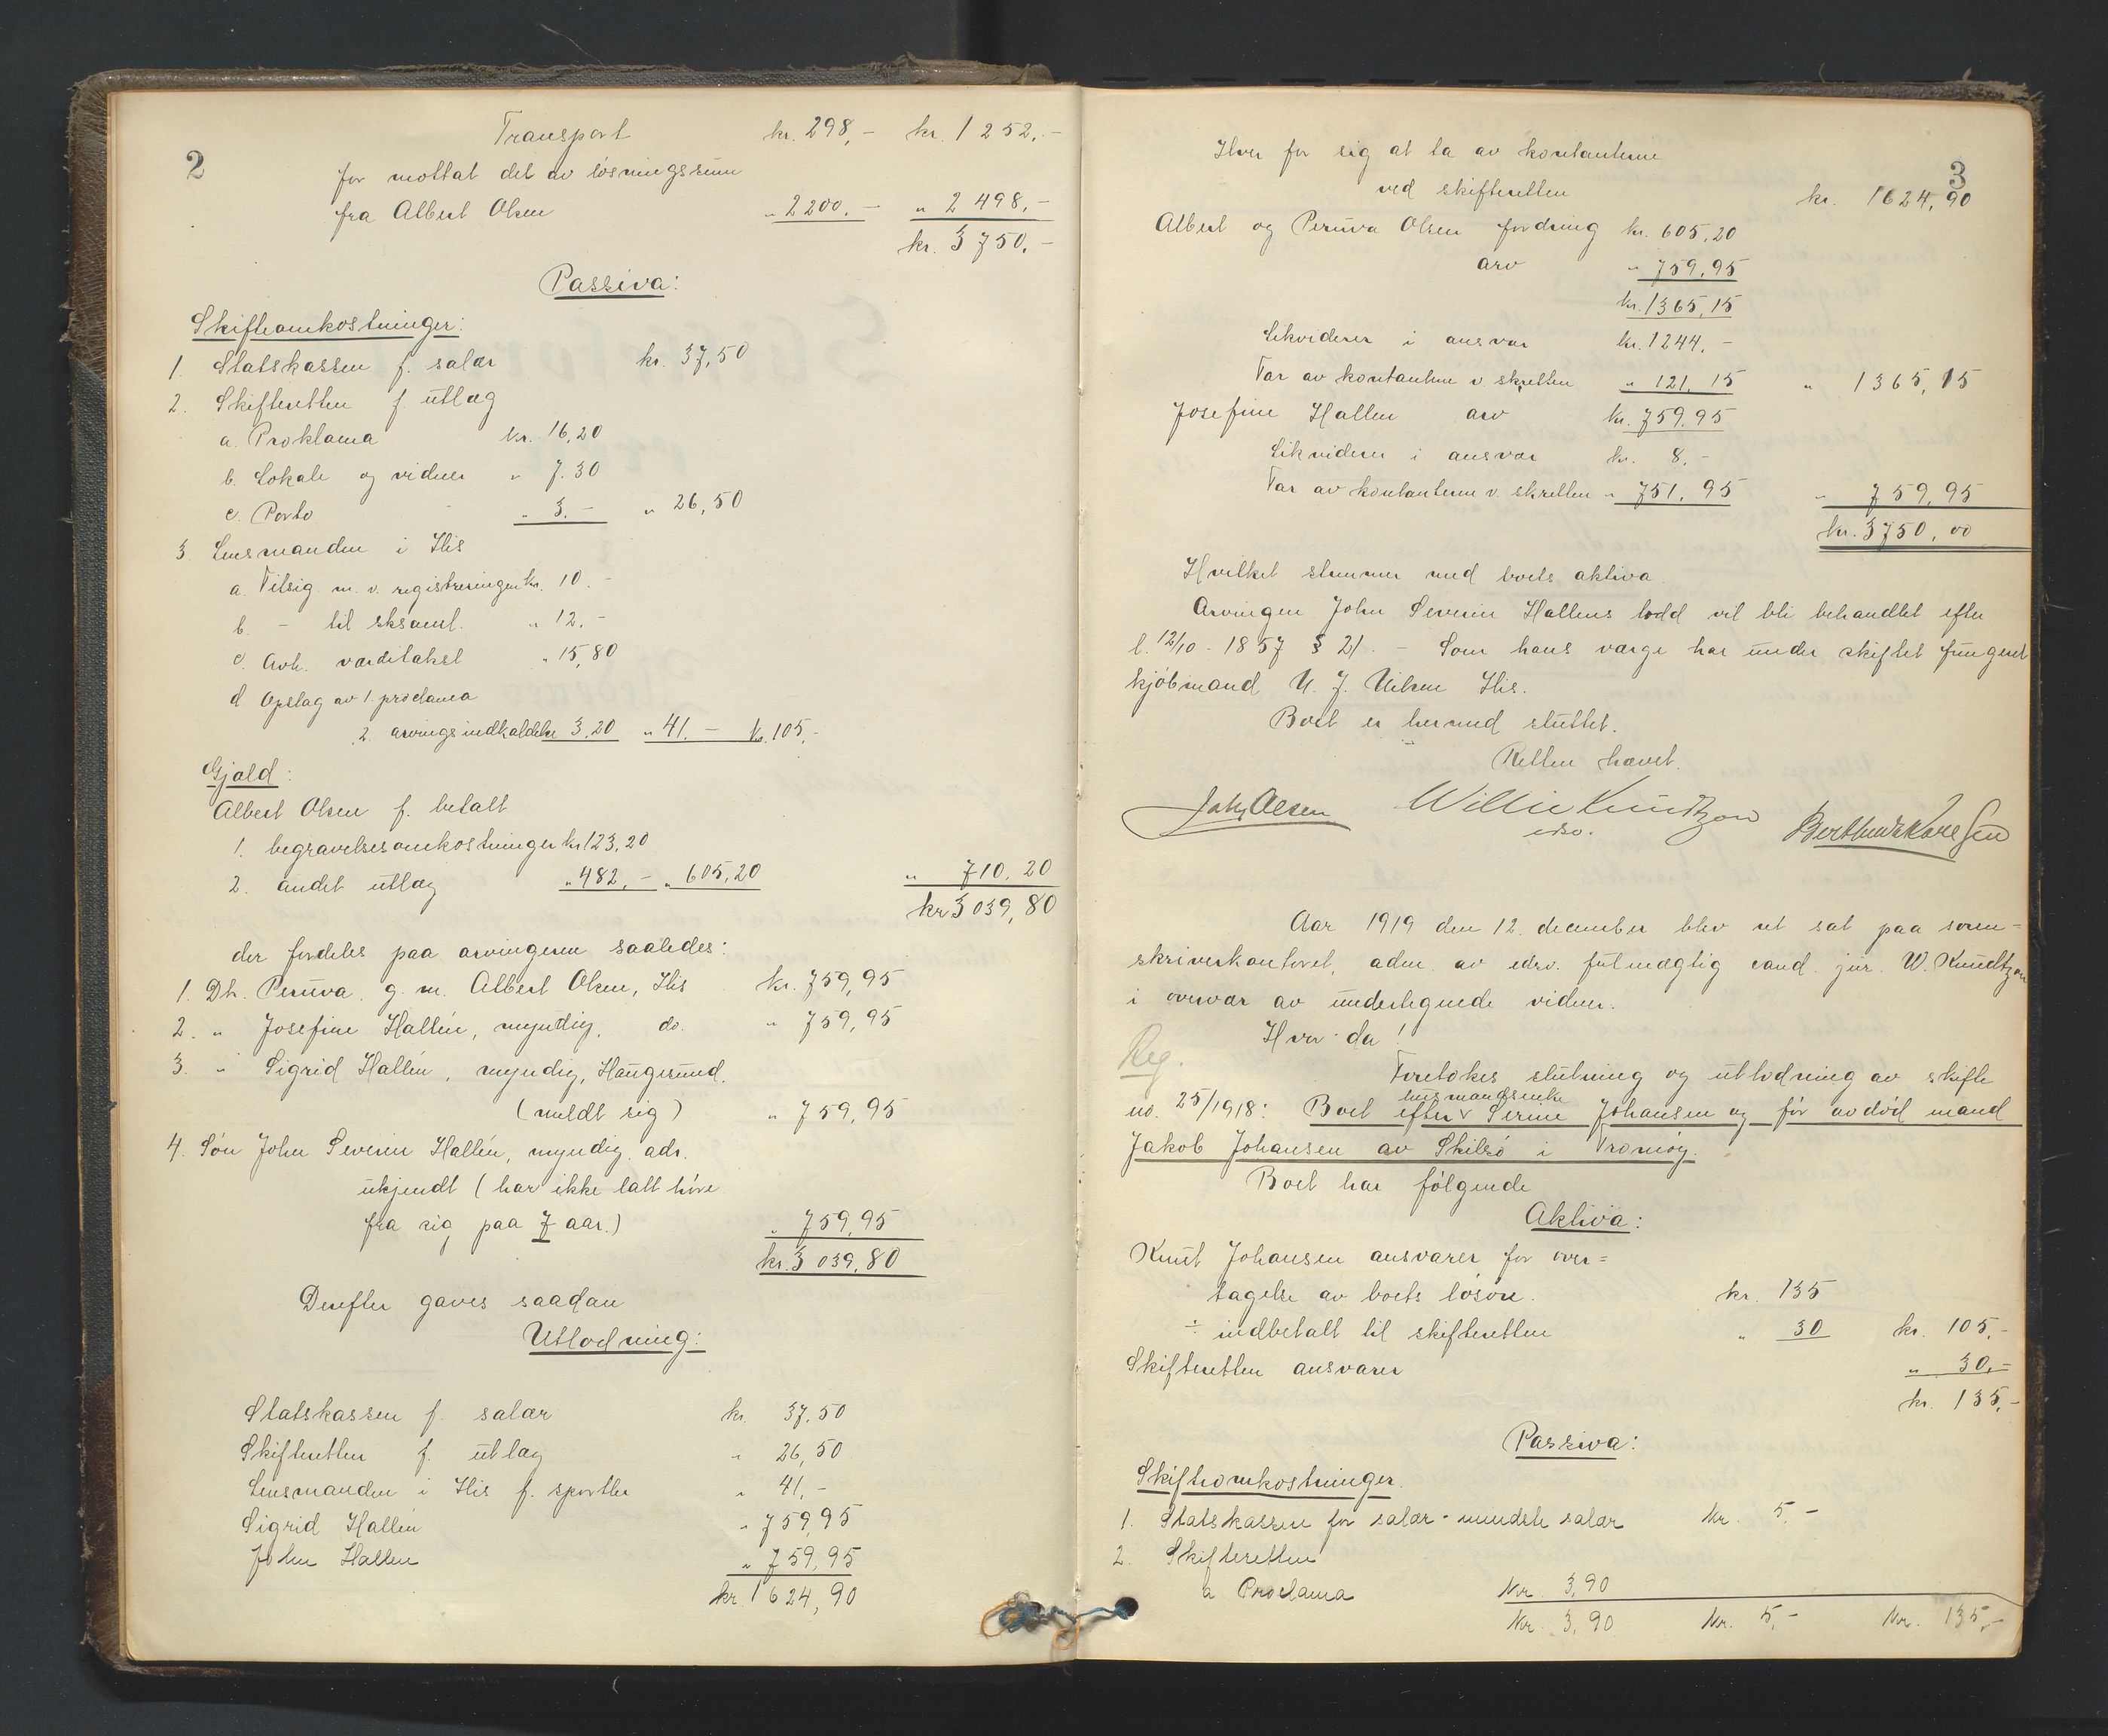 2
Transport kr. 298,- kr. 1252.-
for mottat del av løsningssum
fra Albert Olsen " 2200.- " 2498,-
kr. 3750.-
Passiva:
Skifteomkostninger:
1. Statskassen f. salær kr. 37,50
2. Skifteretten f. utlæg
a. Proklama kr. 16,20
b. Lokale og vidner " 7.30
c. Porto " 3.- " 26,50
3 Lensmanden i His
a. Tilsig. m. v. registreringen kr. 10.-
b. - til sksaml. " 12.-
c. Avh. værditakst " 15,80
d Opslag av 1. proclama
2. arvingsindkaldelse 3,20 " 41.- kr. 105,-
Gjæld:
Albert Olsen f. betalt
1. begravelsesomkostninger kr 123,20
2. andet utlæg " 482,- " 605,20 " 710,20
kr 3039,80
der fordeles paa arvingerne saaledes:
1. Dt. Peruva g. m. Albert Olsen, His kr. 759,95
2. " Josefine Hallén, myndig, do. " 759,95
3. " Sigrid Hallén, myndig, Haugesund.
(meldt sig) " 759,95
4. Søn John Severin Hallén, myndig adr.
ukjendt (har ikke latt høre
fra sig paa 7 aar.) " 759,95
kr. 3039,80
Derefter gaves saadan
Utlodning:
Statskassen f. salær kr. 37,50
Skifteretten f. utlæg " 26,50
Lensmanden i His f. sportler " 41,-
Sigrid Hallén " 759,95
John Hallen " 759,95
kr. 1624,90
3
Hver for sig at ta av kontanterne
ved skifteretten kr. 1624,90
Albert og Peruva Olsen fordring kr. 605,20
arv " 759,95
kr. 1365,15
Likviderer i ansvar kr. 1244,-
Tar av kontanterne v. skretten " 121,15 " 1365,15
Josefine Hallen arv kr. 759,95
Likviderer i ansvar kr. 8,-
Tar av kontanterne v. skretten " 751,95 " 759,95
kr. 3750,00
Hvilket stemmer med boets aktiva.
Arvingen John Severin Hallens lodd vil bli behandlet efter
l. 12/10 - 1857 § 21. - Som hans værge har under skiftet fungert
kjøbmand N. J. Nilsen His.
Boet er hermed sluttet.
Retten hævet.
Joh, Olsen Willie Knudtzon Berthus Karelsen
edsv.
Aar 1919 den 12. december blev ret sat paa soren=
skriverkontoret, adm. av edsv. fuldmægtig cand. jur. W. Knudtzon
i overvær av undertegnede vidner.
Hvor da!
Reg.
Foretokes slutning og utlodning av skifte
no. 25/1918: Boet efter lensmandsenke Serine Johansen og før avdød mand
Jakob Johansen av Skilsø i Tromøy.
Boet har følgende
Aktiva:
Knut Johansen ansvarer for over=
tagelse av boets løsøre. kr. 135
÷ indbetalt til skifteretten " 30 kr. 105,-
Skifteretten ansvarer " 30,-
kr. 135,-
Passiva:
Skifteomkostninger.
1. Statskassen for salær - mindste salær kr. 5,-
2. Skifteretten
a Proclama kr. 3,90
kr. 3,90 kr. 5,- kr. 135,-